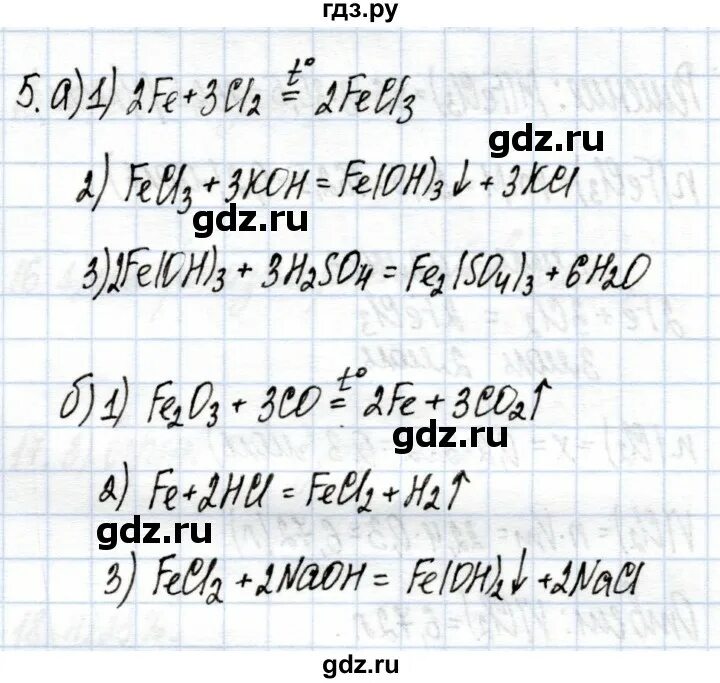 гдз.ру
5. а) 1) 2Fe + 3Cl₂ t° = 2FeCl₃
gdz.ru
2) FeCl₃ + 3KOH = Fe(OH)₃↓ + 3KCl
gdz.ru
3) 2Fe(OH)₃ + 3H₂SO₄ = Fe₂(SO₄)₃ + 6H₂O
б) 1) Fe₂O₃ + 3CO t° = 2Fe + 3CO₂↑
gdz.ru
2) Fe + 2HCl = FeCl₂ + H₂↑
gdz.ru
3) FeCl₂ + 2NaOH = Fe(OH)₂↓ + 2NaCl
gdz.ru